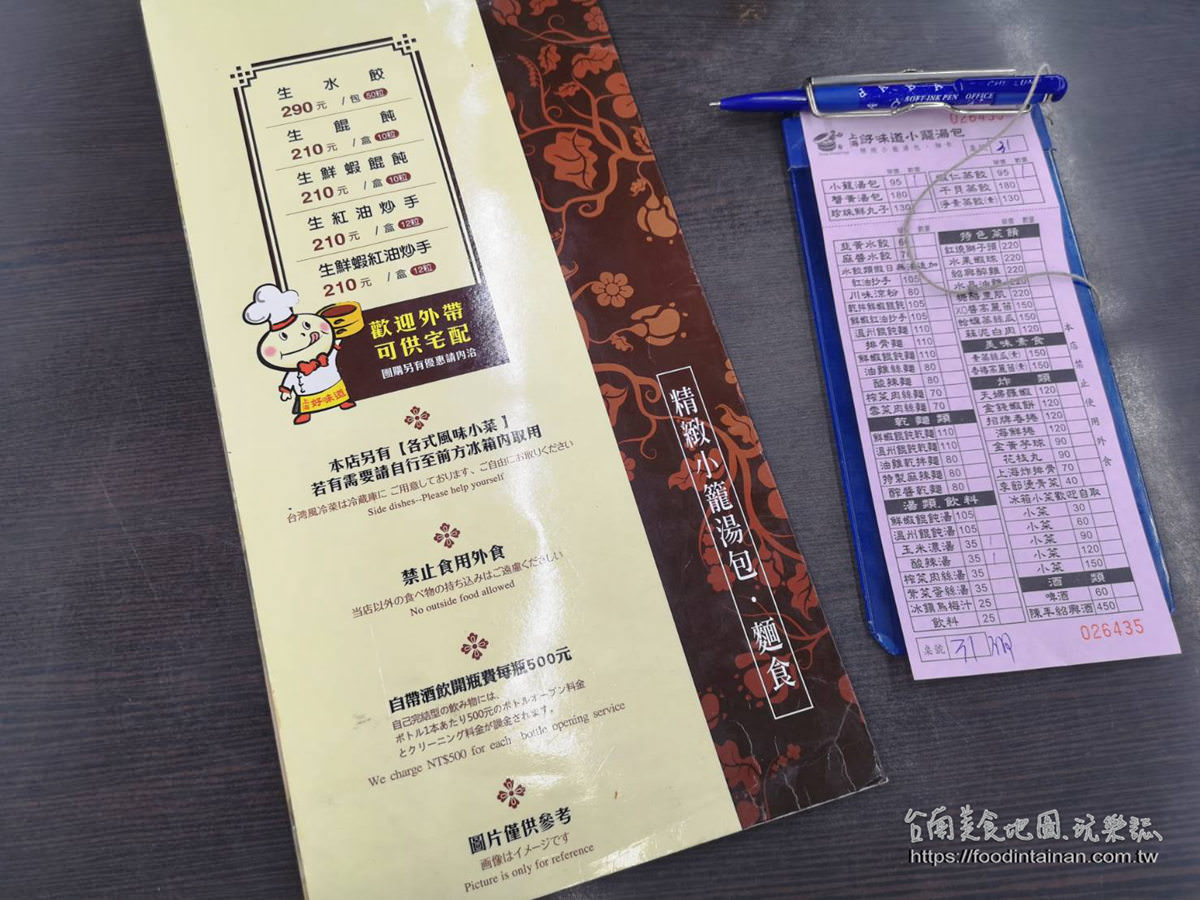 生水餃
290元 /包 50粒
生餛飩
210元 /盒 10粒
生鮮蝦餛飩
210元 /盒 10粒
生紅油炒手
210元 /盒 12粒
生鮮蝦紅油炒手
210元 /盒 12粒
歡迎外帶
可供宅配
團購另有優惠請內洽
好味道
本店另有【各式風味小菜】
若有需要請自行至前方冰箱內取用
台湾風冷菜は冷蔵庫に ご用意しております、ご自由にお取りください
Side dishes--Please help yourself
禁止食用外食
当店以外の食べ物の持ち込みはご遠慮ください
No outside food allowed
自帶酒飲開瓶費每瓶500元
自己完結型の飲み物には、
ボトル1本あたり500元のボトルオープン料金
とクリーニング料金が課金されます。
We charge NT$500 for each bottle opening service
圖片僅供參考
画像はイメージです
Picture is only for reference
精緻小籠湯包·麵食
SOFT-INK PEN OFFICE
026435
上海好味道小籠湯包
單價 數量 單價 數量
小籠湯包 95
蟹黃湯包 180
珍珠鮮丸子 130
蝦仁蒸餃 95
干貝蒸餃 180
淨素蒸餃(素) 130
韭黃水餃
麻醬水餃
紅油抄手 105
川味涼粉 80
乾拌鮮蝦餛飩 105
鮮蝦紅油抄手 105
溫州餛飩麵 110
排骨麵 110
鮮蝦餛飩麵 110
油雞絲麵 80
酸辣麵 80
榨菜肉絲麵 70
雪菜肉絲麵 80
乾麵類
鮮蝦餛飩乾麵 110
溫州餛飩乾麵 110
油雞乾拌麵 80
特製麻辣麵 80
酢醬乾麵 80
湯類.飲料
鮮蝦餛飩湯 105
溫州餛飩湯 105
玉米濃湯 35
酸辣湯 35
榨菜肉絲湯 35
紫菜蛋絲湯 35
冰鎮烏梅汁 25
飲料 25
特色菜餚
紅燒獅子頭 220
水果蝦球 220
紹興醉雞 220
220
220
XO醬高麗菜 150
蛤蠣蒸絲瓜 150
蒜泥白肉 120
美味素食
素蒸絲瓜(素) 150
香椿高麗菜(素) 150
炸類
天婦羅蝦 120
金錢蝦餅 120
招牌春捲 120
海鮮捲 120
金黃芋球 90
花枝丸 90
上海炸排骨 70
季節燙青菜 40
冰箱小菜歡迎自取
小菜 30
小菜 60
小菜 90
小菜 120
小菜 150
酒類
啤酒 60
陳年紹興酒 450
本店禁止使用外食
桌號
026435
台南美食地圖.玩樂誌
https://foodintainan.com.tw